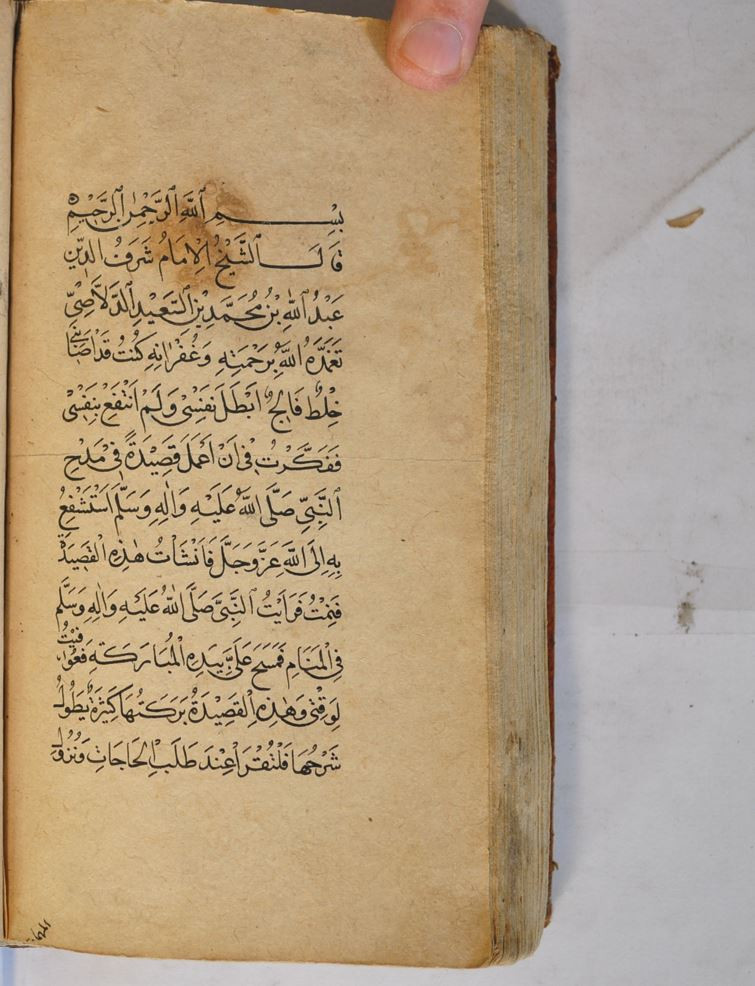 بِسْمِ ٱللَّهِ ٱلرَّحْمٰنِ ٱلرَّحِيْمِ
قَالَ ٱلشَّيْخُ الْاِمَامُ شَرَفُ الدِّيْنِ
عَبْدُ ٱللهِ بْنُ مُحَمَّدِ بْنِ ٱلسَّعِيْدِ الدَّلَاصِيِّ
تَغَمَّدَهُ ٱللَّهُ بِرَحْمَتِهِ وَغُفْرَانِهِ كُنْتُ قَدْ اَصَابَنِيْ
خِلْطٌ فَالِجٌ اَبْطَلَ نَفْسِيْ وَلَمْ اَنْتَفِعْ بِنَفْسِيْ
فَفَكَّرْتُ فِيْ اَنْ اَعْمَلَ قَصِيْدَةً فِيْ مَدْحِ
ٱلنَّبِيِّ صَلَّى ٱللَّهُ عَلَيْهِ وَاٰلِهِ وَسَلَّمَ اَسْتَشْفِعُ
بِهِ اِلَى ٱللَّهِ عَزَّ وَجَلَّ فَاَنْشَأْتُ هٰذِهِ الْقَصِيْدَةَ
فَنِمْتُ فَرَاَيْتُ ٱلنَّبِيَّ صَلَّى ٱللهُ عَلَيْهِ وَاٰلِهِ وَسَلَّمَ
فِي الْمَنَامِ فَمَسَحَ عَلَيَّ بِيَدِهِ الْمُبَارَكَةِ فَعُوْفِيْتُ
لِوَقْتِيْ وَهٰذِهِ الْقَصِيْدَةُ بَرَكَتُهَا كَثِيْرَةٌ يَطُوْلُ
شَرْحُهَا فَلْتُقْرَأْ عِنْدَ طَلَبِ الْحَاجَاتِ وَنُزُوْلِ